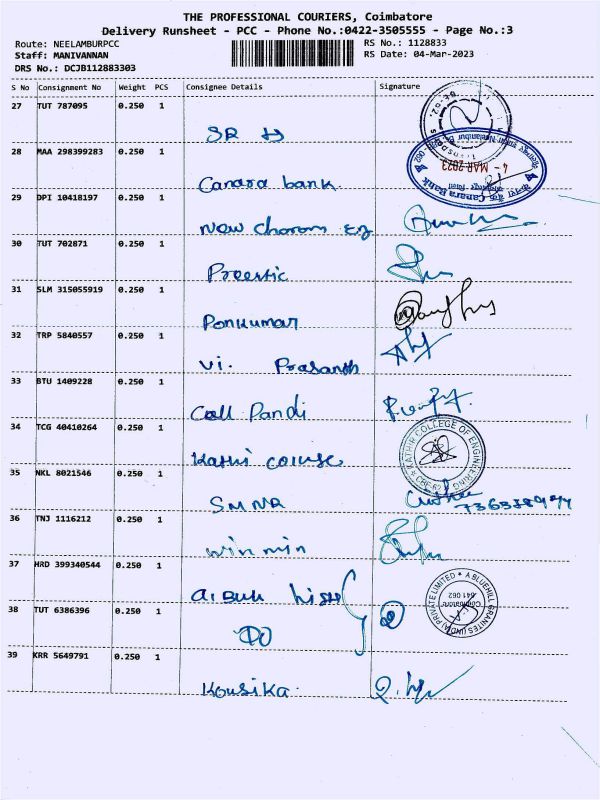 THE PROFESSIONAL COURIERS, Coimbatore
Delivery Runsheet - PCC - Phone No.:0422-3505555 - Page No.:3
Route: NEELAMBURPCC
RS No.: 1128833
Staff: MANIVANNAN
RS Date: 04-Mar-2023
DRS No.: DCJB112883303
S No Consignment No Weight PCS Consignee Details Signature
27 TUT 787095 0.250 1
SR
28 MAA 298399283 0.250 1
4 - MAR 2023
Canara Bank
Canara bank
29 DPI 10418197 0.250 1
New
30 TUT 702871 0.250 1
Preestic
31 SLM 315055919 0.250 1
Ponkumar
32 TRP 5840557 0.250 1
Vi. Prasanth
33 BTU 1409228 0.250 1
Call Pandi
34 TCG 40410264 0.250 1
KATHIR COLLEGE OF ENGINEERING
CBE-62
Kathi
35 NKL 8021546 0.250 1
SMMR
36 TNJ 1116212 0.250 1
win min
37 HRD 399340544 0.250 1
A BLUEHILL GRANITES (INDIA) PRIVATE LIMITED
Coimbatore
641 062
38 TUT 6386396 0.250 1
DO
39 KRR 5649791 0.250 1
Kousika.